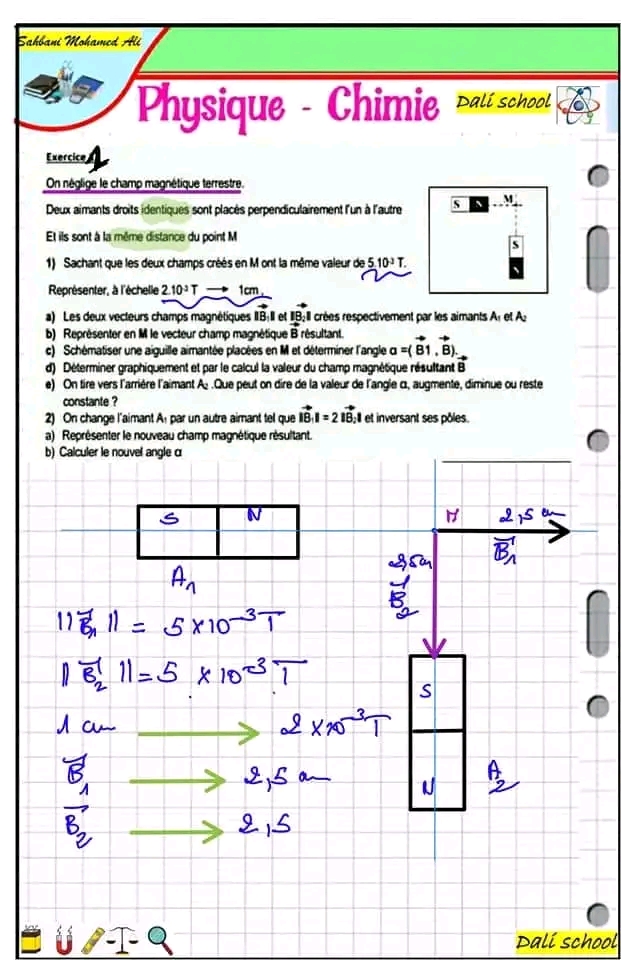 Sahbani Mohamed Ali
Physique - Chimie
Dali school
Exercice 1
On néglige le champ magnétique terrestre.
Deux aimants droits identiques sont placés perpendiculairement l'un à l'autre
Et ils sont à la même distance du point M
S N M
S
N
1) Sachant que les deux champs créés en M ont la même valeur de 5.10⁻³ T.
Représenter, à l'échelle 2.10⁻³ T → 1cm.
a) Les deux vecteurs champs magnétiques ‖B⃗₁‖ et ‖B⃗₂‖ crées respectivement par les aimants A₁ et A₂
b) Représenter en M le vecteur champ magnétique B⃗ résultant.
c) Schématiser une aiguille aimantée placées en M et déterminer l'angle α =( B⃗1 , B⃗).
d) Déterminer graphiquement et par le calcul la valeur du champ magnétique résultant B⃗
e) On tire vers l'arrière l'aimant A₂ .Que peut on dire de la valeur de l'angle α, augmente, diminue ou reste
constante ?
2) On change l'aimant A₁ par un autre aimant tel que ‖B⃗₁‖ = 2 ‖B⃗₂‖ et inversant ses pôles.
a) Représenter le nouveau champ magnétique résultant.
b) Calculer le nouvel angle α
S N
A₁
M 2,5 cm
B⃗₁
2,5cm
B⃗₂
||B⃗₁|| = 5×10⁻³ T
||B⃗₂|| = 5 × 10⁻³ T
1 cm → 2×10⁻³ T
B⃗₁ → 2,5 cm
B⃗₂ → 2,5
S
N
A₂
Dali school